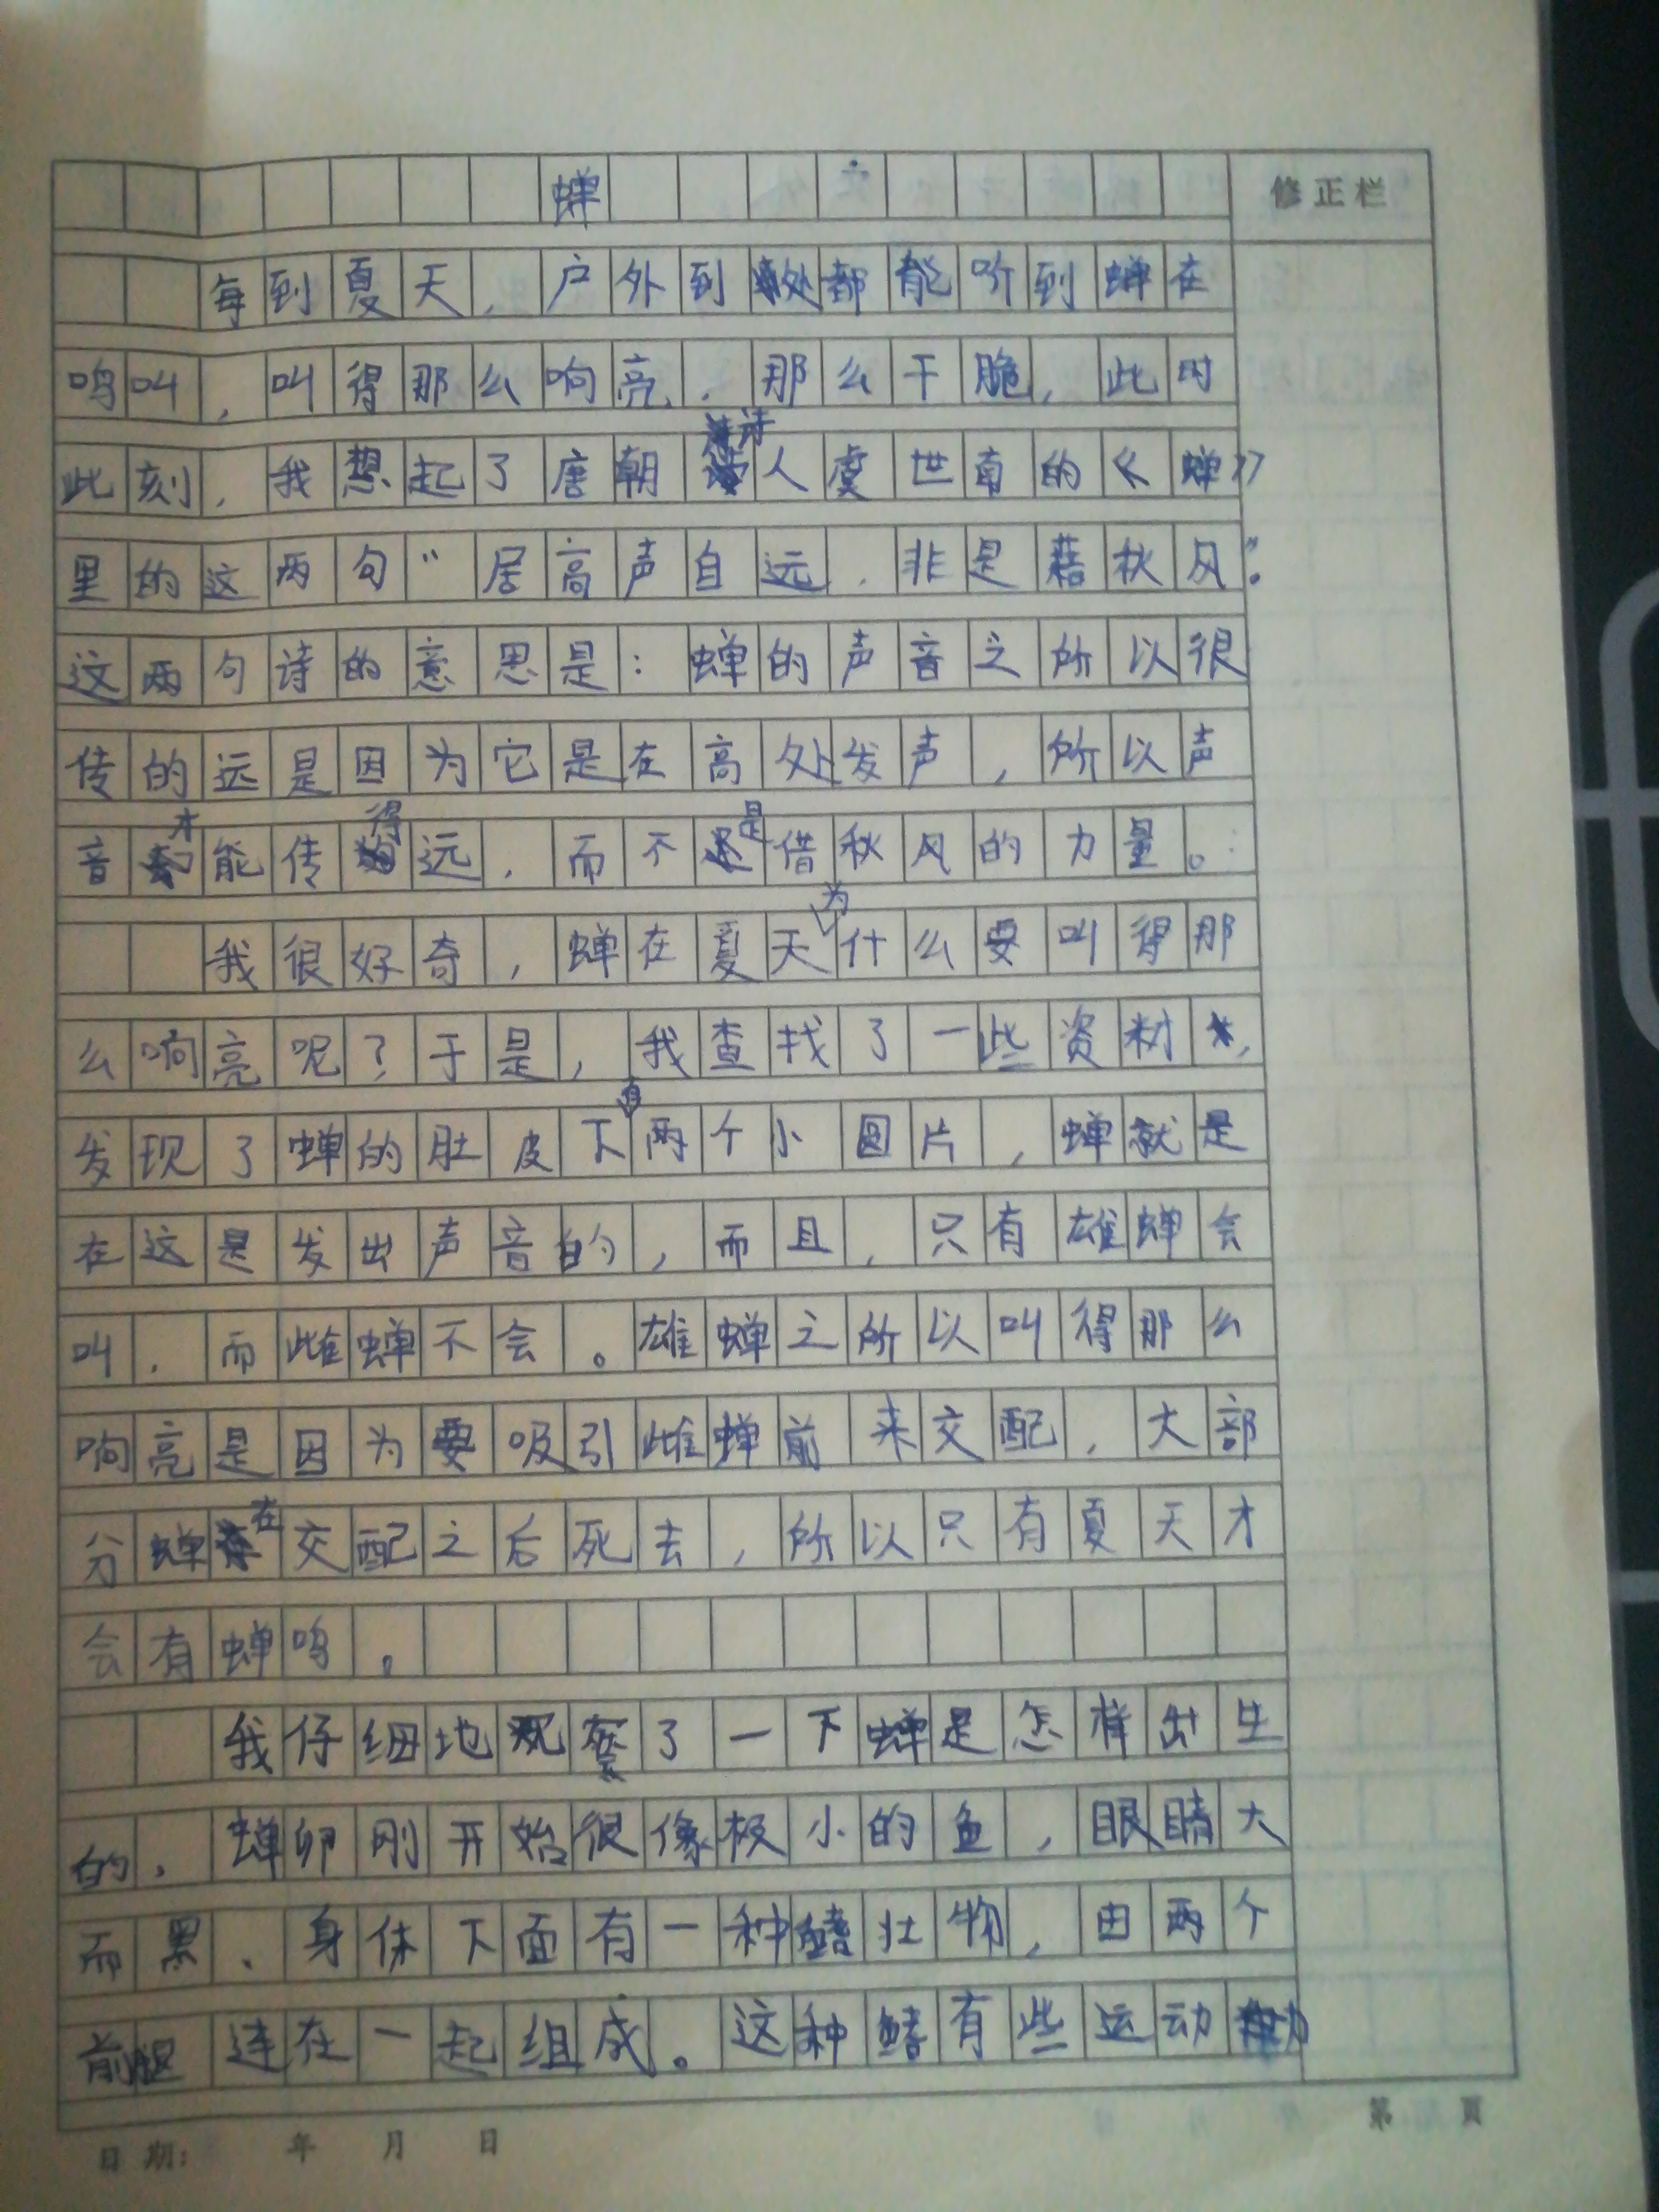 蝉
修正栏
每到夏天，户外到处都能听到蝉在
鸣叫，叫得那么响亮，那么干脆，此时
此刻，我想起了唐朝诗人虞世南的《蝉》
里的这两句“居高声自远，非是藉秋风”。
这两句诗的意思是：蝉的声音之所以很
传的远是因为它是在高处发声，所以声
音才能传得远，而不是借秋风的力量。
我很好奇，蝉在夏天为什么要叫得那
么响亮呢？于是，我查找了一些资料，
发现了蝉的肚皮下有两个小圆片，蝉就是
在这是发出声音的，而且，只有雄蝉会
叫，而雌蝉不会。雄蝉之所以叫得那么
响亮是因为要吸引雌蝉前来交配，大部
分蝉在交配之后死去，所以只有夏天才
会有蝉鸣。
我仔细地观察了一下蝉是怎样出生
的，蝉卵刚开始很像极小的鱼，眼睛大
而黑，身体下面有一种鳍壮物，由两个
前腿连在一起组成。这种鳍有些运动
日期： 年 月 日
第 頁